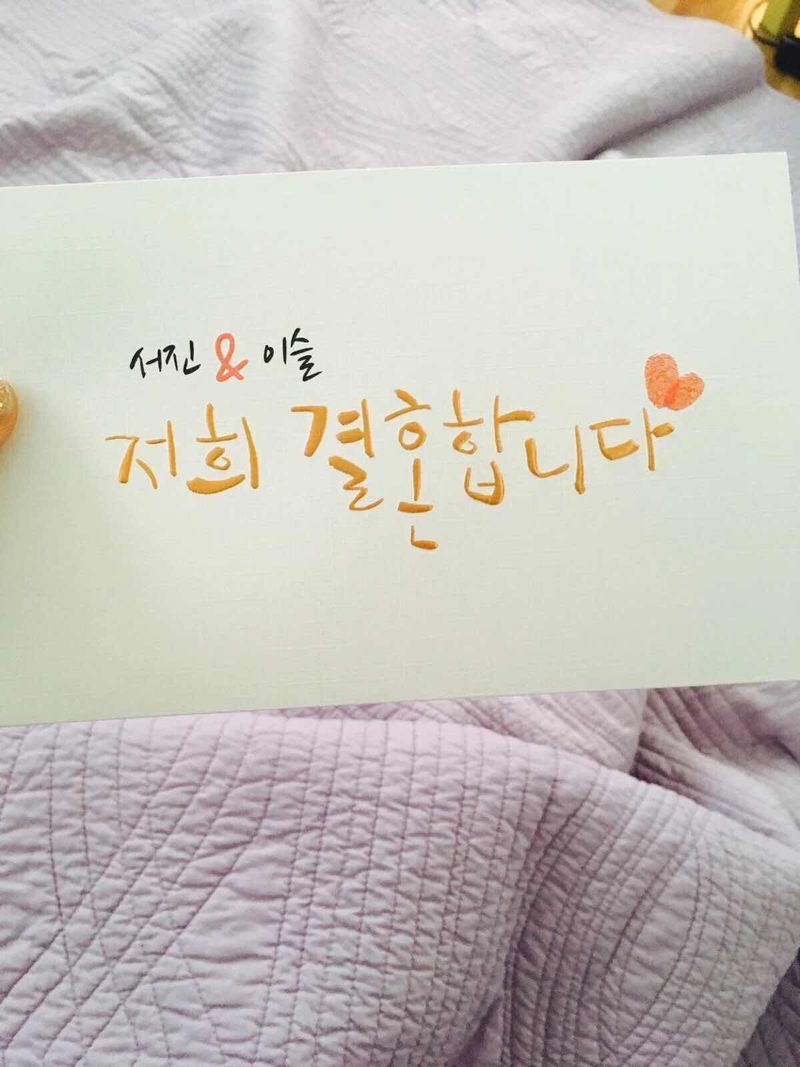 서진 & 이슬
저희 결혼합니다